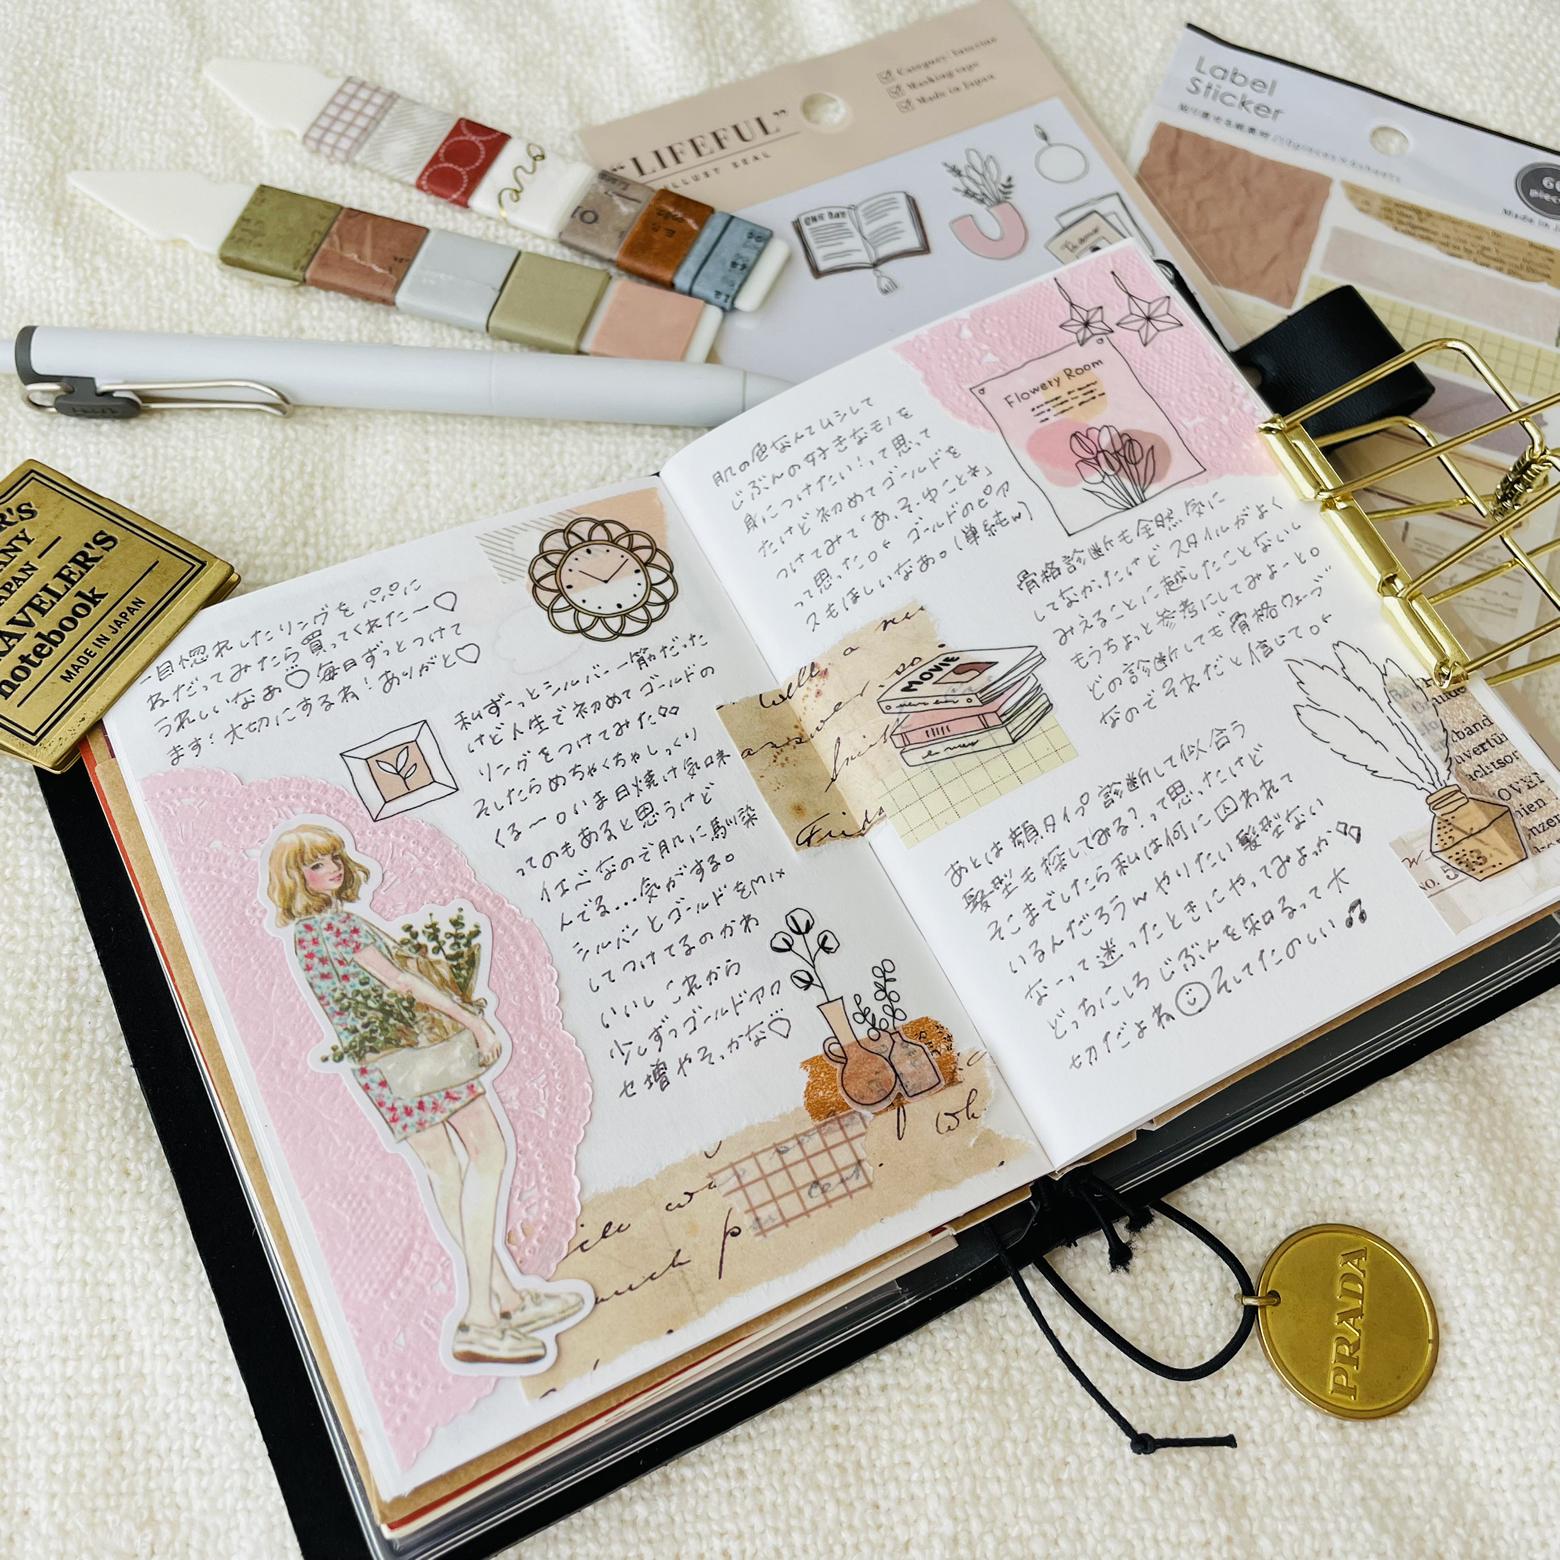 "LIFEFUL"
ILLUST SEAL
Category: Interior
Masking tape
Made in Japan
ONE DAY
Label
Sticker
60
Made in
TRAVELER'S
notebook
MADE IN JAPAN
一目惚れしたリングをパパに
ねだってみたら買ってくれた〜♡
うれしいなぁ♡毎日ずっとつけて
ます! 大切にするね!ありがと♡
私ずーっとシルバー一筋だった
けど人生で初めてゴールドの
リングをつけてみた
そしたらめちゃくちゃしっくり
くる〜。いま日焼け気味
ってのもあると思うけど
イエベなので肌に馴染
んでる...気がする。
シルバーとゴールドをMIX
してつけてるのかわ
いいし これから
少しずつゴールドアク
セ増やそっかな♡
肌の色なんてムシして
じぶんの好きなモノを
身につけたい!って思って
たけど初めてゴールドを
つけてみて「あ、そゆことね」
って思った。 ゴールドのピア
スもほしいなあ。(単純w)
Flowery Room
骨格診断も全然気に
してなかったけど スタイルがよく
みえることに越したことないし
もうちょっと参考にしてみよーと。
どの診断しても骨格ウェーブ
なのでそれだと信じて。
MOVIE
あとは顔タイプ診断して似合う
髪型も探してみる?って思ったけど
そこまでしたら私は何に囚われて
いるんだろうwやりたい髪型ない
なーって迷ったときにやってみよっか
どっちにしろじぶんを知るって大
切だよね そしてたのしい♫
NO. 5
PRADA